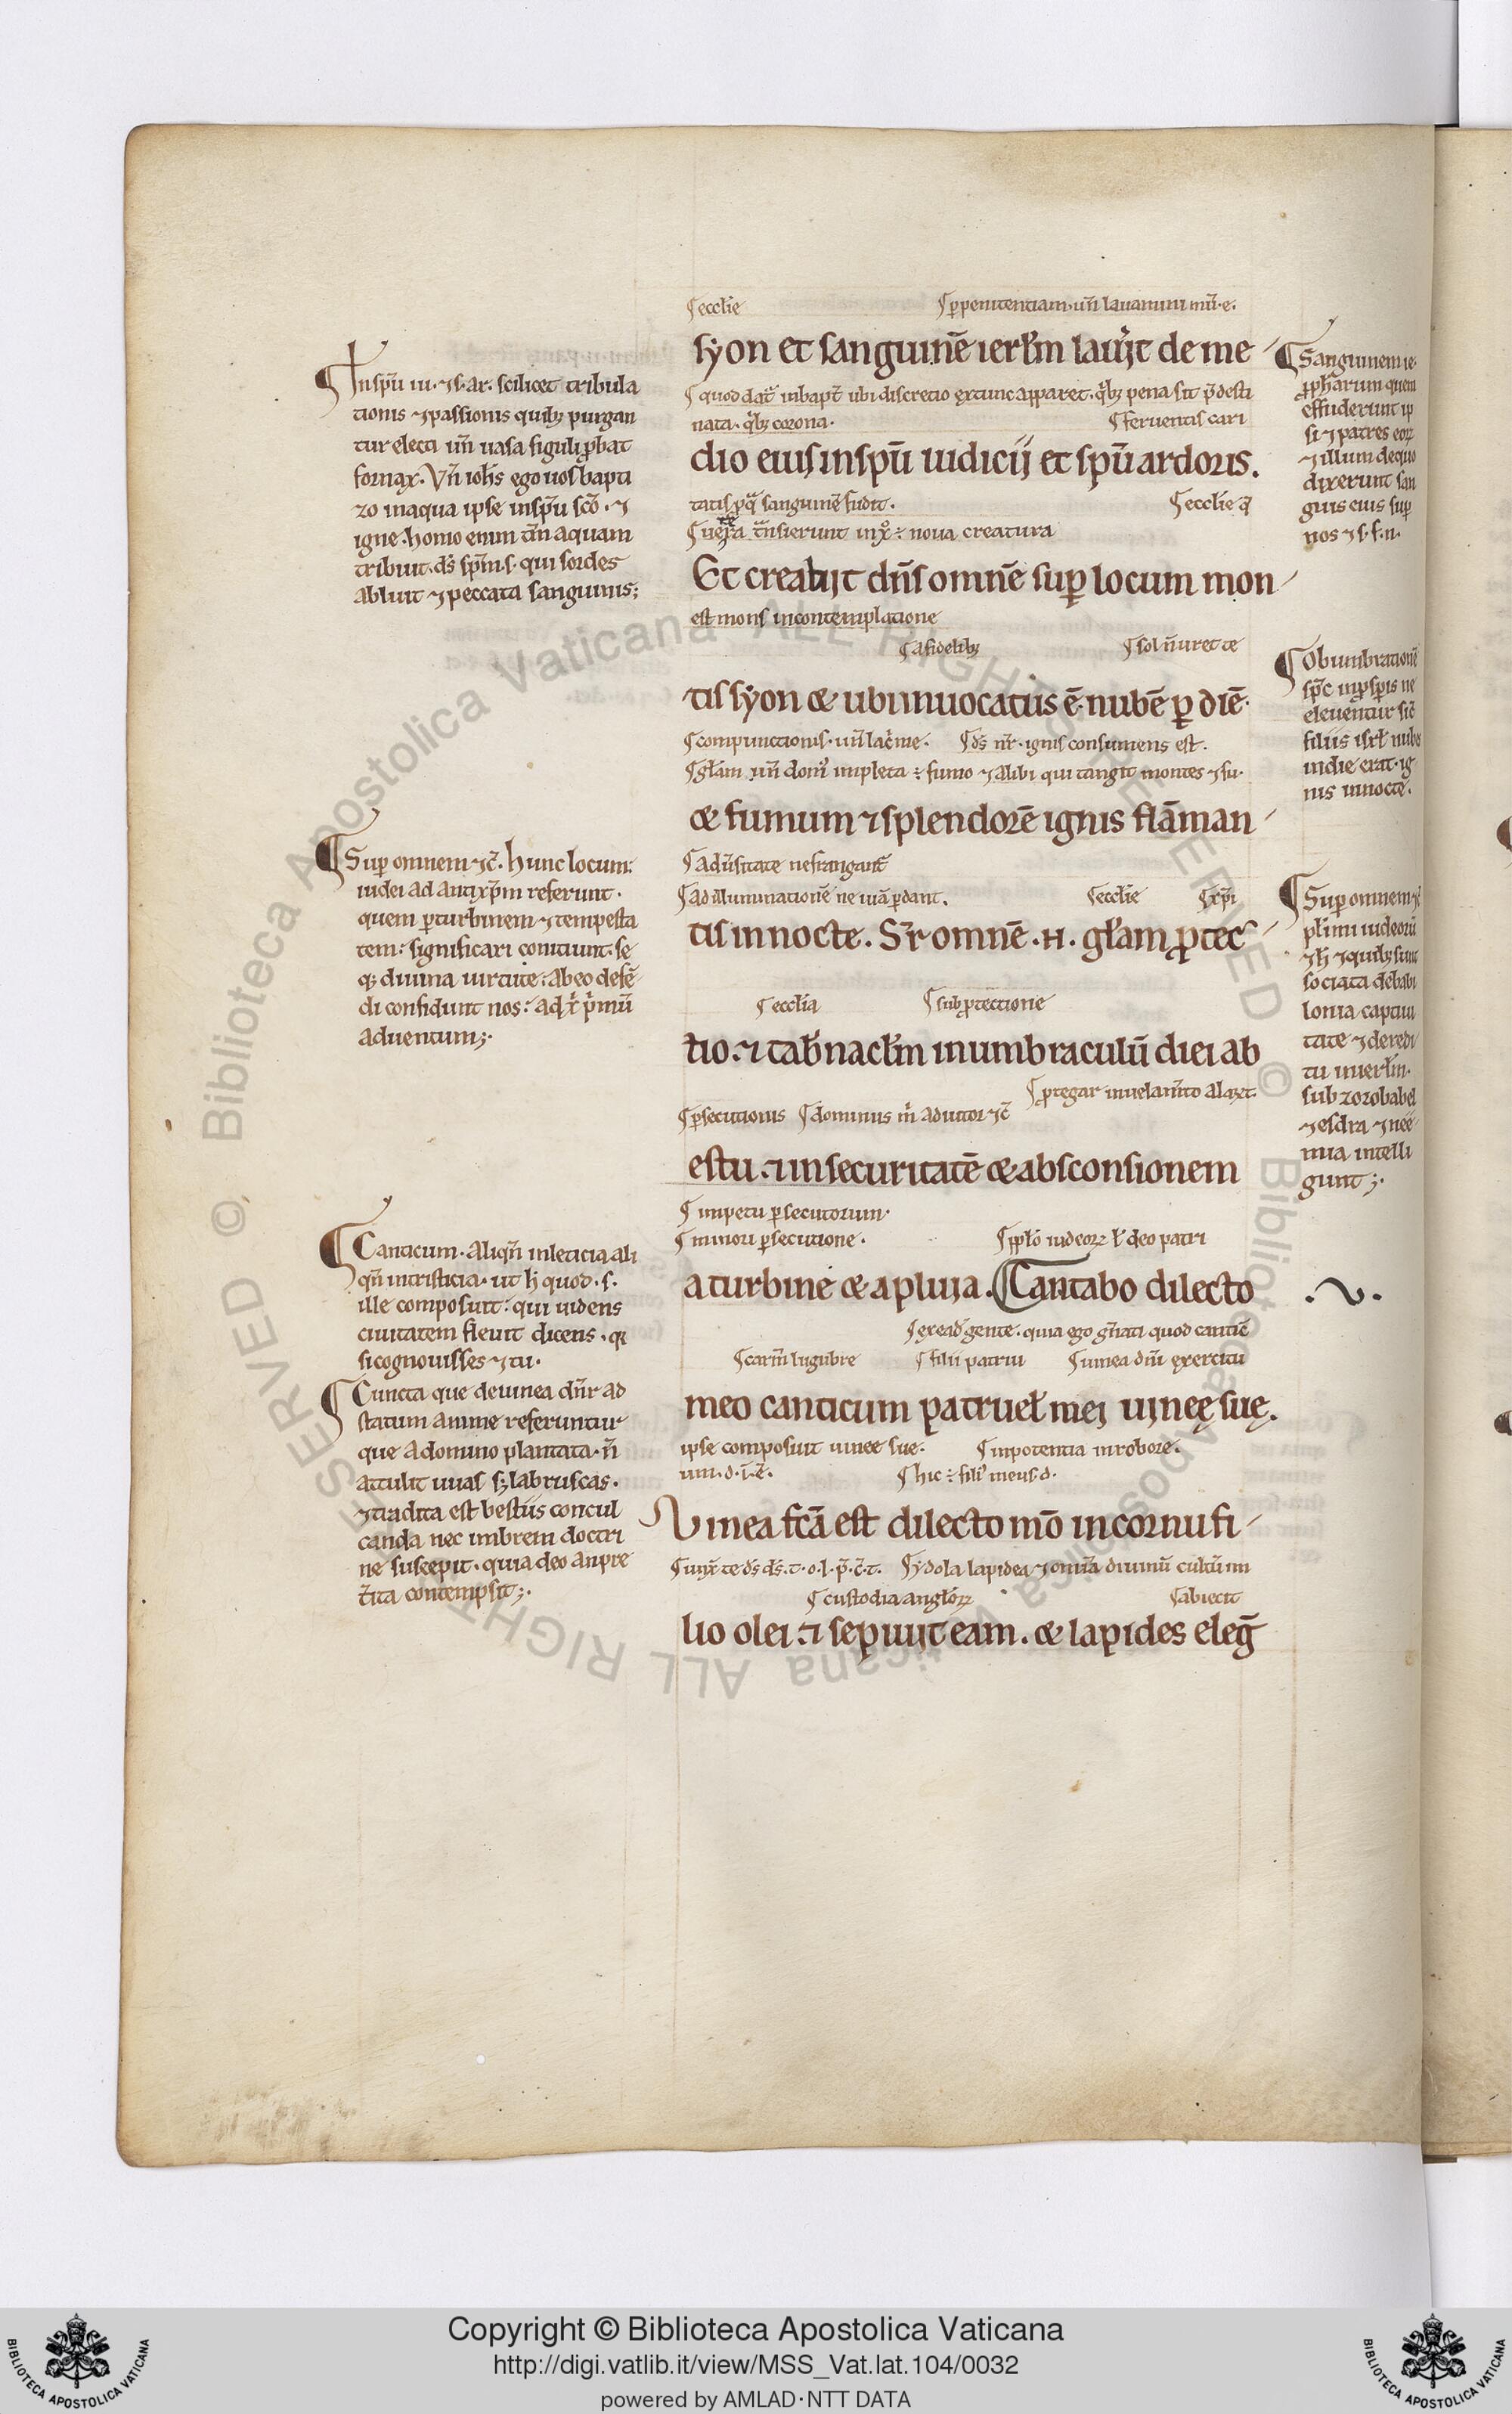 ¶ eccl̄ie ¶ p̱penitentiam· un̄ lauamini mū·e·
syon et sanguinē ierl̄m lau̓ıt de me
¶ quod dat̄ inbapt̄ ubi discretio extunc apparet· q̓b; pena sit p̄desti
nata· q̓b; corona· ¶ feruentis cari
dio eius inspū iudicij et spū ardoris.
tatis p̱q̄ sanguinē fudit. ¶ eccl̄ie q̄
t̄nsierunt inx̄ ÷ noua creatura
Et creabıt dn̄s omnē sup̱ locum mon
est mons incontemplatione
¶ a fidelib; ¶ sol n̄ uret te
tis syon & ubi inuocatus ē· nubē p̱ diē·
¶ compunctionis· un̄ lac̓me· ¶ ds̄ nr̄· ignis consumens est.
¶ gl̄am un̄ dom̓ impleta ÷ fumo ⁊ alibi qui tangit montes ⁊ fu·
& fumum ⁊ splendorē ignis flāman
¶ aduersitate ne frangant̄
¶ ad illuminationē ne uiā p̱dant. ¶ eccl̄ie ¶ xp̄i
tis innocte. Sr̄ omnē ·H· gl̄am p̱tec
¶ eccl̄ia ¶ sub p̱tectione
tio· ⁊ tab̄nacl̄m inumbraculū diei ab
¶ p̱tegar inuelam̄to alar̄·
¶ p̱secutionis ¶ dominus m̓ adiutor ⁊c̄
estu· ⁊ insecuritatē & absconsionem
¶ impetu p̱secutorum·
¶ minori p̱secutione. ¶ pp̄lo iudeoꝝ ł deo patri
a turbine & a pluıa. ¶ Cantabo dilecto
·V·
¶ ex ead̄ gente· quia ego gn̄ati quod canticū
¶ carm̄ lugubre ¶ filii patrui ¶ uinea dn̄i exercitu
meo canticum patruel̄ meı uıneę suę.
ipse composuit uinee sue· ¶ inpotentia inrobore·
um· d·i·ē· ¶ hic ÷ fili̓ meus· d·
Uinea fc̄a est dilecto mō incornu fi
¶ unx̄ te ds̄ ds̄· t·o·l·p̄·c̄·t· ¶ ydola lapidea ⁊ omīa diuinū cultū im
¶ custodia angl̄oꝝ ¶ abiecit
lio olei· ⁊ sepiuıt eam. & lapides eleḡ
¶ Inspū iu· ⁊ s·ar· scilicet tribula
tionis ⁊ passionis quib; purgan
tur electi un̄ uasa figuli p̱bat
fornax. Vn̄ ioh̄s ego uos bapti
zo inaqua ipse inspū scō· ⁊
igne· homo enim tn̄ aquam
tribuit· ds̄ spm̄·s· qui sordes
abluit ⁊ peccata sanguinis;
¶ Sup̱ omnem ⁊c̄. hunc locum:
iudei ad antixp̄m referunt·
quem p̱turbinem ⁊ tempesta
tem: significari coniciunt· se
q; diuina uirtute: abeo defē
di confidunt nos: ad x̄ p̓mū
aduentum;·
¶ Canticum· aliqn̄ inleticia ali
qn̄ intristicia· ut h̄ quod·s·
ille composuit: qui uidens
ciuitatem fleuit dicens· qr̄
si cognouisses ⁊ tu·
¶ Cuncta que deuinea dn̄r ad
statum anime referuntur
que a domino plantata· n̄
attulit uuas s; labruscas·
⁊ tradita est bestiis concul
canda nec imbrem doctri
ne suscepit· quia deo an p̱re
t̄ita contempsit;·
¶ Sanguinem ie·
p̱ph̄arum quem
effuderunt ip
si ⁊ patres eoꝝ
⁊ illum de quo
dixerunt san
guis eius sup̱
nos ⁊ s·f·n·
¶ Obumbrationē
sp̄c inp̱sp̱is ne
eleuentur sic̄
filiis isrl̄ nubes
indie erat· ig
nis innocte·
¶ Sup̱ omnem ⁊c̄
pl̄imi iudeorū
⁊ h̄ ⁊ quib; sunt
sociata debabi
lonia captiui
tate ⁊ deredi
tu inierl̄m·
sub zorobabel
⁊ esdra ⁊ nee
mia intelli
gunt;·
Copyright © Biblioteca Apostolica Vaticana
http://digi.vatlib.it/view/MSS_Vat.lat.104/0032
powered by AMLAD·NTT DATA
BIBLIOTECA APOSTOLICA VATICANA
BIBLIOTECA APOSTOLICA VATICANA